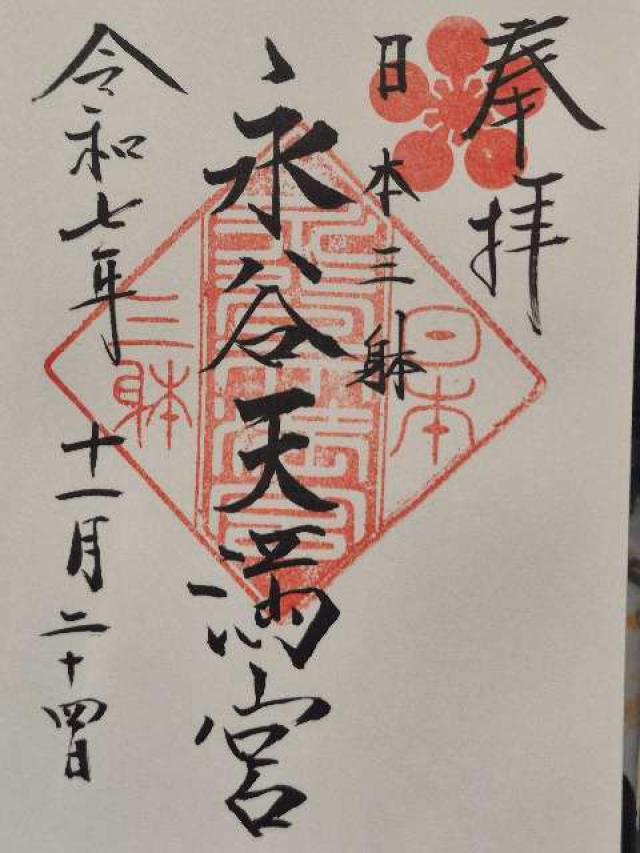 奉拝
日本三躰
永谷天満宮
令和七年十一月二十四日
日本
永谷天満宮
三躰